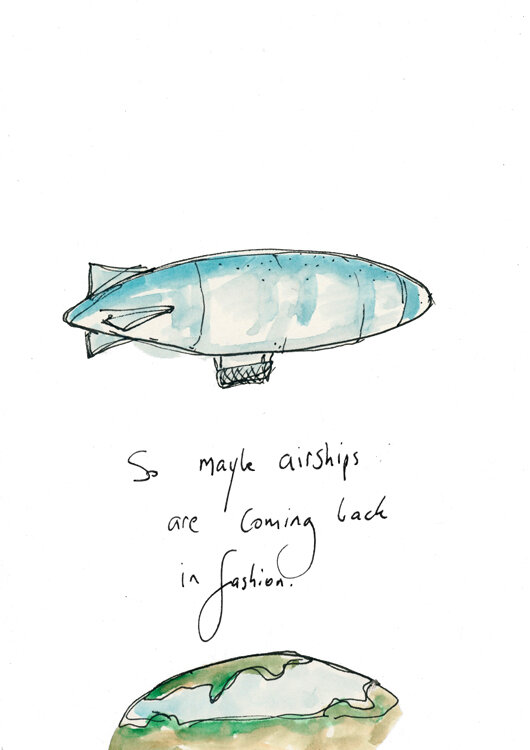 So maybe airships
are coming back
in fashion.